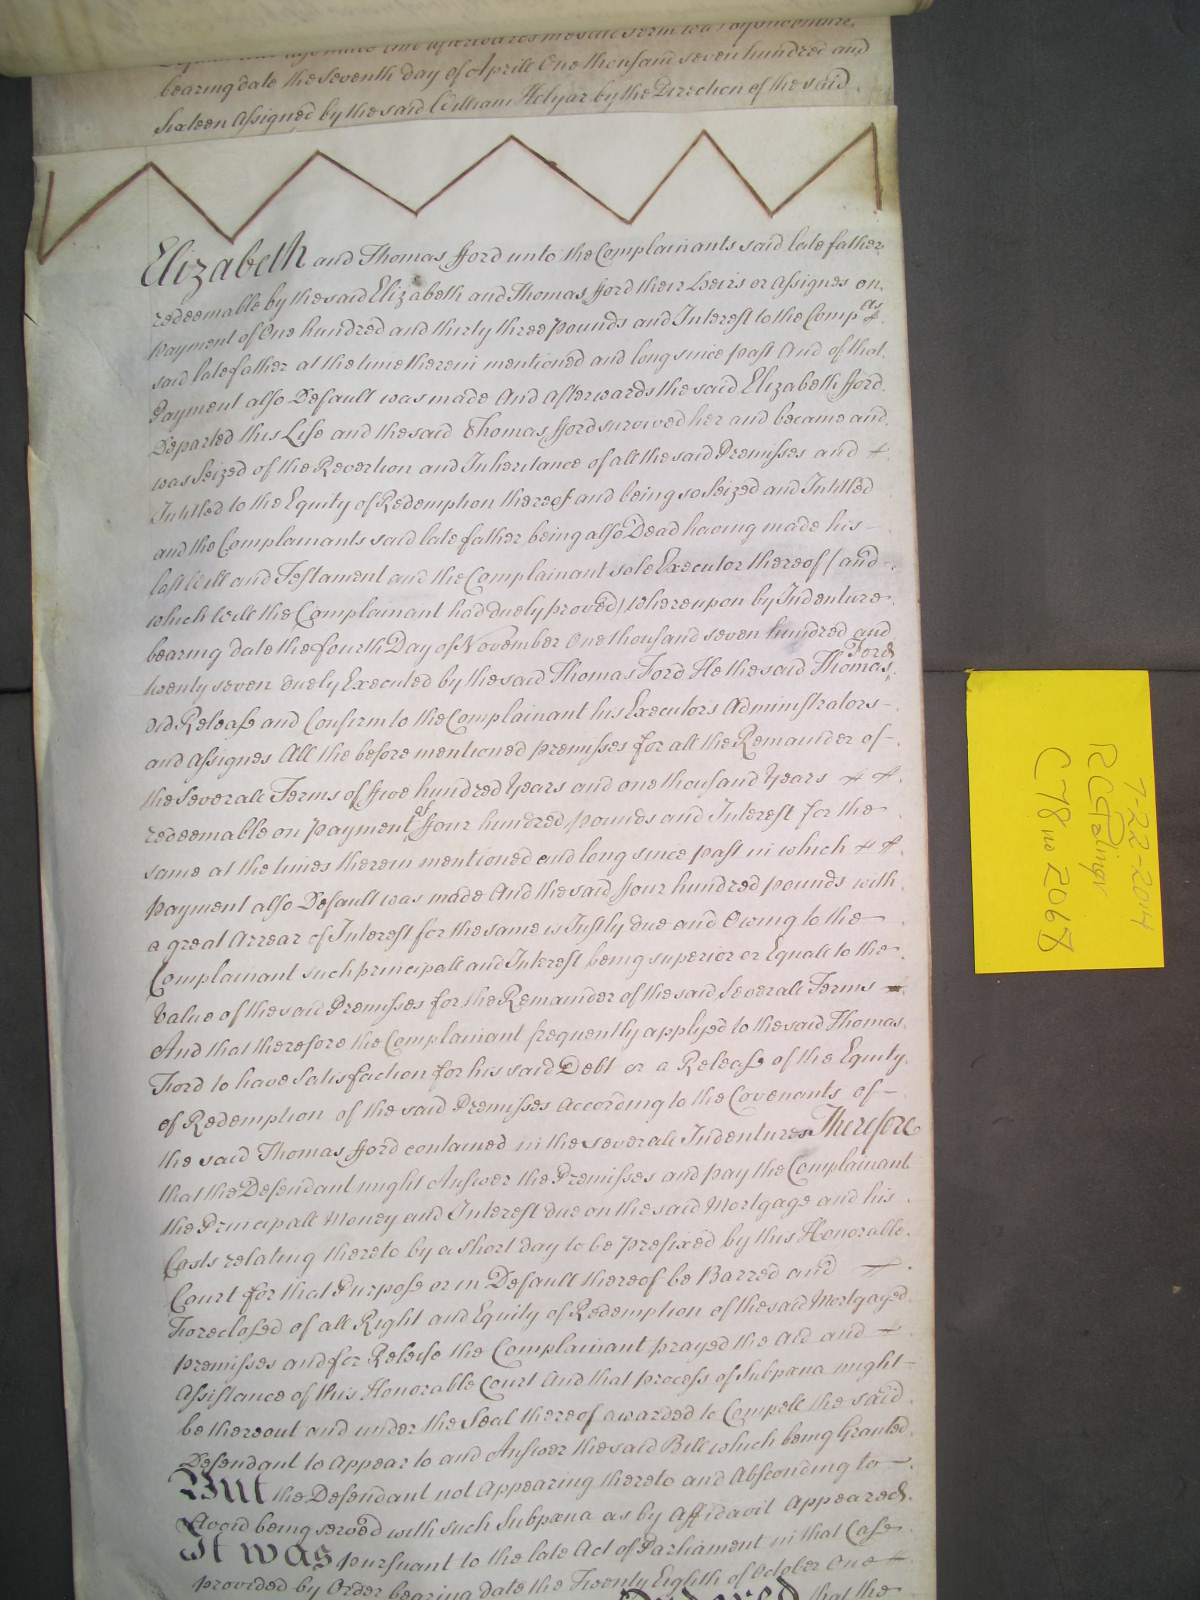 bearing date the seventh day of Aprill One thousand seven hundred and
sixteen Assigned by the said William Helyar by the Direction of the said
Elizabeth and Thomas fford unto the Complainants said late father
redeemable by the said Elizabeth and Thomas fford their Heirs or Assignes on
Payment of One hundred and thirty three pounds and Interest to the Compᵗˢ
said late father at the time therein mentioned and long since past And of that
Payment also Default was made And afterwards the said Elizabeth fford
Departed this Life and the said Thomas fford survived her and became and
was Seized of the Revertion and Inheritance of all the said Premisses and
Intitled to the Equity of Redemption thereof and being so Seized and Intitled
and the Complainants said late father being also Dead having made his
last Will and Testament and the Complainant sole Executor thereof (and
which Will the Complainant had duely proved) Whereupon by Indenture
bearing date the fourth Day of November One thousand seven hundred and
twenty seven duely Executed by the said Thomas Ford He the said Thomas Ford
did Release and Confirm to the Complainant his Executors Administrators
and Assignes All the before mentioned premisses for all the Remainder of
the Severall Terms of ffive hundred Years and one thousand Years
redeemable on payment of ffour hundred pounds and Interest for the
same at the times therein mentioned and long since past in which
payment also Default was made And the said ffour hundred pounds with
a great Arrear of Interest for the same is Justly due and Owing to the
Complainant such principall and Interest being superior or Equall to the
Value of the said Premisses for the Remainder of the said Severall Terms
And that therefore the Complainant frequently applyed to the said Thomas
Ford to have Satisfaction for his said Debt or a Release of the Equity
of Redemption of the said Premisses According to the Covenants of
the said Thomas fford contained in the severall Indentures Therefore
that the Defendant might Answer the Premisses and pay the Complainant
the Principall Money and Interest due on the said Mortgage and his
Costs relating thereto by a short day to be prefixed by this Honorable
Court for that Purpose or in Default thereof be Barred and
Foreclosed of all Right and Equity of Redemption of the said Mortgaged
premisses and for Releife the Complainant prayed the Aid and
Assistance of this Honorable Court And that process of Subpœna might
be thereout and under the Seal thereof awarded to Compell the said
Defendant to Appear to and Answer the said Bill which being Granted
But the Defendant not Appearing thereto and Absconding to
Avoid being served with such Subpœna as by Affidavit Appeared
It was pursuant to the late Act of Parliament in that Case
provided by Order bearing date the Twenty Eighth of October One
Ordered that the
7-22-2014
C78 no 2068